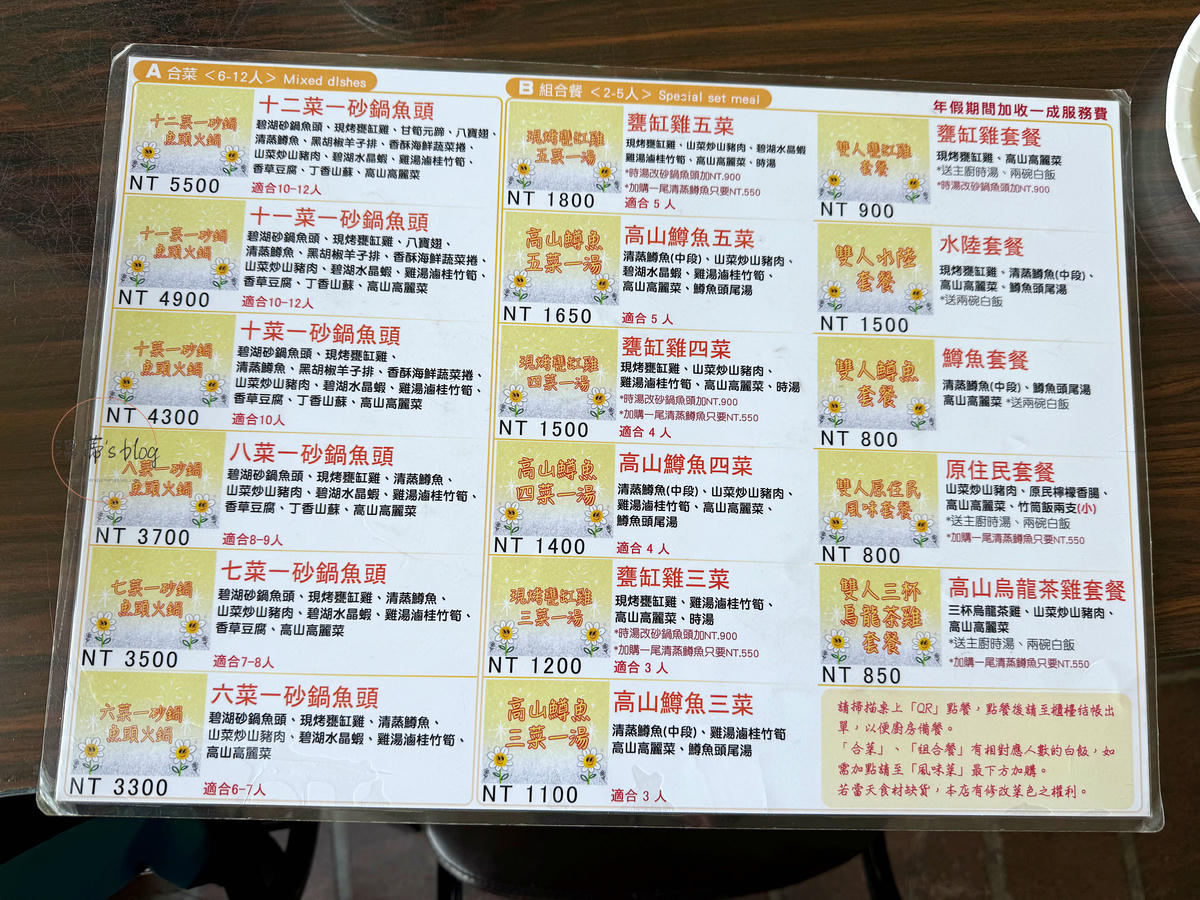 A 合菜 <6-12人> Mixed dIshes
十二菜一砂鍋
魚頭火鍋
NT 5500
十二菜一砂鍋魚頭
碧湖砂鍋魚頭、現烤甕缸雞、甘筍元蹄、八寶翅、
清蒸鱒魚、黑胡椒羊子排、香酥海鮮蔬菜捲、
山菜炒山豬肉、碧湖水晶蝦、雞湯滷桂竹筍、
香草豆腐、丁香山蘇、高山高麗菜
適合10-12人
十一菜一砂鍋
魚頭火鍋
NT 4900
十一菜一砂鍋魚頭
碧湖砂鍋魚頭、現烤甕缸雞、八寶翅、
清蒸鱒魚、黑胡椒羊子排、香酥海鮮蔬菜捲、
山菜炒山豬肉、碧湖水晶蝦、雞湯滷桂竹筍、
香草豆腐、丁香山蘇、高山高麗菜
適合10-12人
十菜一砂鍋
魚頭火鍋
NT 4300
十菜一砂鍋魚頭
碧湖砂鍋魚頭、現烤甕缸雞、
清蒸鱒魚、黑胡椒羊子排、香酥海鮮蔬菜捲、
山菜炒山豬肉、碧湖水晶蝦、雞湯滷桂竹筍、
香草豆腐、丁香山蘇、高山高麗菜
適合10人
's blog
八菜一砂鍋
魚頭火鍋
NT 3700
八菜一砂鍋魚頭
碧湖砂鍋魚頭、現烤甕缸雞、清蒸鱒魚、
山菜炒山豬肉、碧湖水晶蝦、雞湯滷桂竹筍、
香草豆腐、丁香山蘇、高山高麗菜
適合8-9人
七菜一砂鍋
魚頭火鍋
NT 3500
七菜一砂鍋魚頭
碧湖砂鍋魚頭、現烤甕缸雞、清蒸鱒魚、
山菜炒山豬肉、碧湖水晶蝦、雞湯滷桂竹筍、
香草豆腐、高山高麗菜
適合7-8人
六菜一砂鍋
魚頭火鍋
NT 3300
六菜一砂鍋魚頭
碧湖砂鍋魚頭、現烤甕缸雞、清蒸鱒魚、
山菜炒山豬肉、碧湖水晶蝦、雞湯滷桂竹筍、
高山高麗菜
適合6-7人
B 組合餐 <2-5人> Special set meal
年假期間加收一成服務費
現烤甕缸雞
五菜一湯
NT 1800
甕缸雞五菜
現烤甕缸雞、山菜炒山豬肉、碧湖水晶蝦
雞湯滷桂竹筍、高山高麗菜、時湯
*時湯改砂鍋魚頭加NT.900
*加購一尾清蒸鱒魚只要NT.550
適合 5 人
高山鱒魚
五菜一湯
NT 1650
高山鱒魚五菜
清蒸鱒魚(中段)、山菜炒山豬肉、
碧湖水晶蝦、雞湯滷桂竹筍、
高山高麗菜、鱒魚頭尾湯
適合 5 人
現烤甕缸雞
四菜一湯
NT 1500
甕缸雞四菜
現烤甕缸雞、山菜炒山豬肉、
雞湯滷桂竹筍、高山高麗菜、時湯
*時湯改砂鍋魚頭加NT.900
*加購一尾清蒸鱒魚只要NT.550
適合 4 人
高山鱒魚
四菜一湯
NT 1400
高山鱒魚四菜
清蒸鱒魚(中段)、山菜炒山豬肉、
雞湯滷桂竹筍、高山高麗菜、
鱒魚頭尾湯
適合 4 人
現烤甕缸雞
三菜一湯
NT 1200
甕缸雞三菜
現烤甕缸雞、雞湯滷桂竹筍、
高山高麗菜、時湯
*時湯改砂鍋魚頭加NT.900
*加購一尾清蒸鱒魚只要NT.550
適合 3 人
高山鱒魚
三菜一湯
NT 1100
高山鱒魚三菜
清蒸鱒魚(中段)、雞湯滷桂竹筍
高山高麗菜、鱒魚頭尾湯
適合 3 人
雙人甕缸雞
套餐
NT 900
甕缸雞套餐
現烤甕缸雞、高山高麗菜
*送主廚時湯、兩碗白飯
*時湯改砂鍋魚頭加NT.900
雙人水陸
套餐
NT 1500
水陸套餐
現烤甕缸雞、清蒸鱒魚(中段)、
高山高麗菜、鱒魚頭尾湯
*送兩碗白飯
雙人鱒魚
套餐
NT 800
鱒魚套餐
清蒸鱒魚(中段)、鱒魚頭尾湯
高山高麗菜 *送兩碗白飯
雙人原住民
風味套餐
NT 800
原住民套餐
山菜炒山豬肉、原民檸檬香腸、
高山高麗菜、竹筒飯兩支(小)
*送主廚時湯、兩碗白飯
*加購一尾清蒸鱒魚只要NT.550
雙人三杯
烏龍茶雞
套餐
NT 850
高山烏龍茶雞套餐
三杯烏龍茶雞、山菜炒山豬肉、
高山高麗菜
*送主廚時湯、兩碗白飯
*加購一尾清蒸鱒魚只要NT.550
請掃描桌上「QR」點餐，點餐後請至櫃檯結帳出
單，以便廚房備餐。
「合菜」、「組合餐」有相對應人數的白飯，如
需加點請至「風味菜」最下方加購。
若當天食材缺貨，本店有修改菜色之權利。